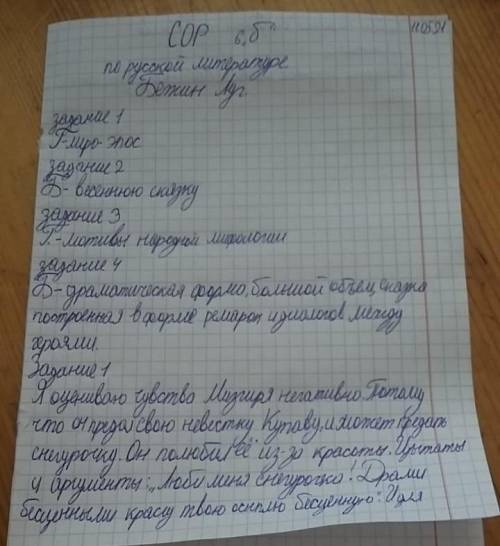 СОР 6 „Б"
11.05.21
по русской литературе
Бежин луг.
задание 1
Г-лиро-эпос
задание 2
Б- весеннюю сказку
задание 3
Г.-мотивы народной мифологии
задание 4
Б-драматическая форма, большой объем, сказка
построенная в форме ремарок и диалогов между
героями.
Задание 1
Я оцениваю чувства Мизгиря негативно. Потому
что он предал свою невестку Купаву, и может предать
снегурочку. Он полюбил её из-за красоты. Цытаты
и аргументы: „Люби меня снегурочка! Драми
бесценными красу твою осыплю бесценную". Для